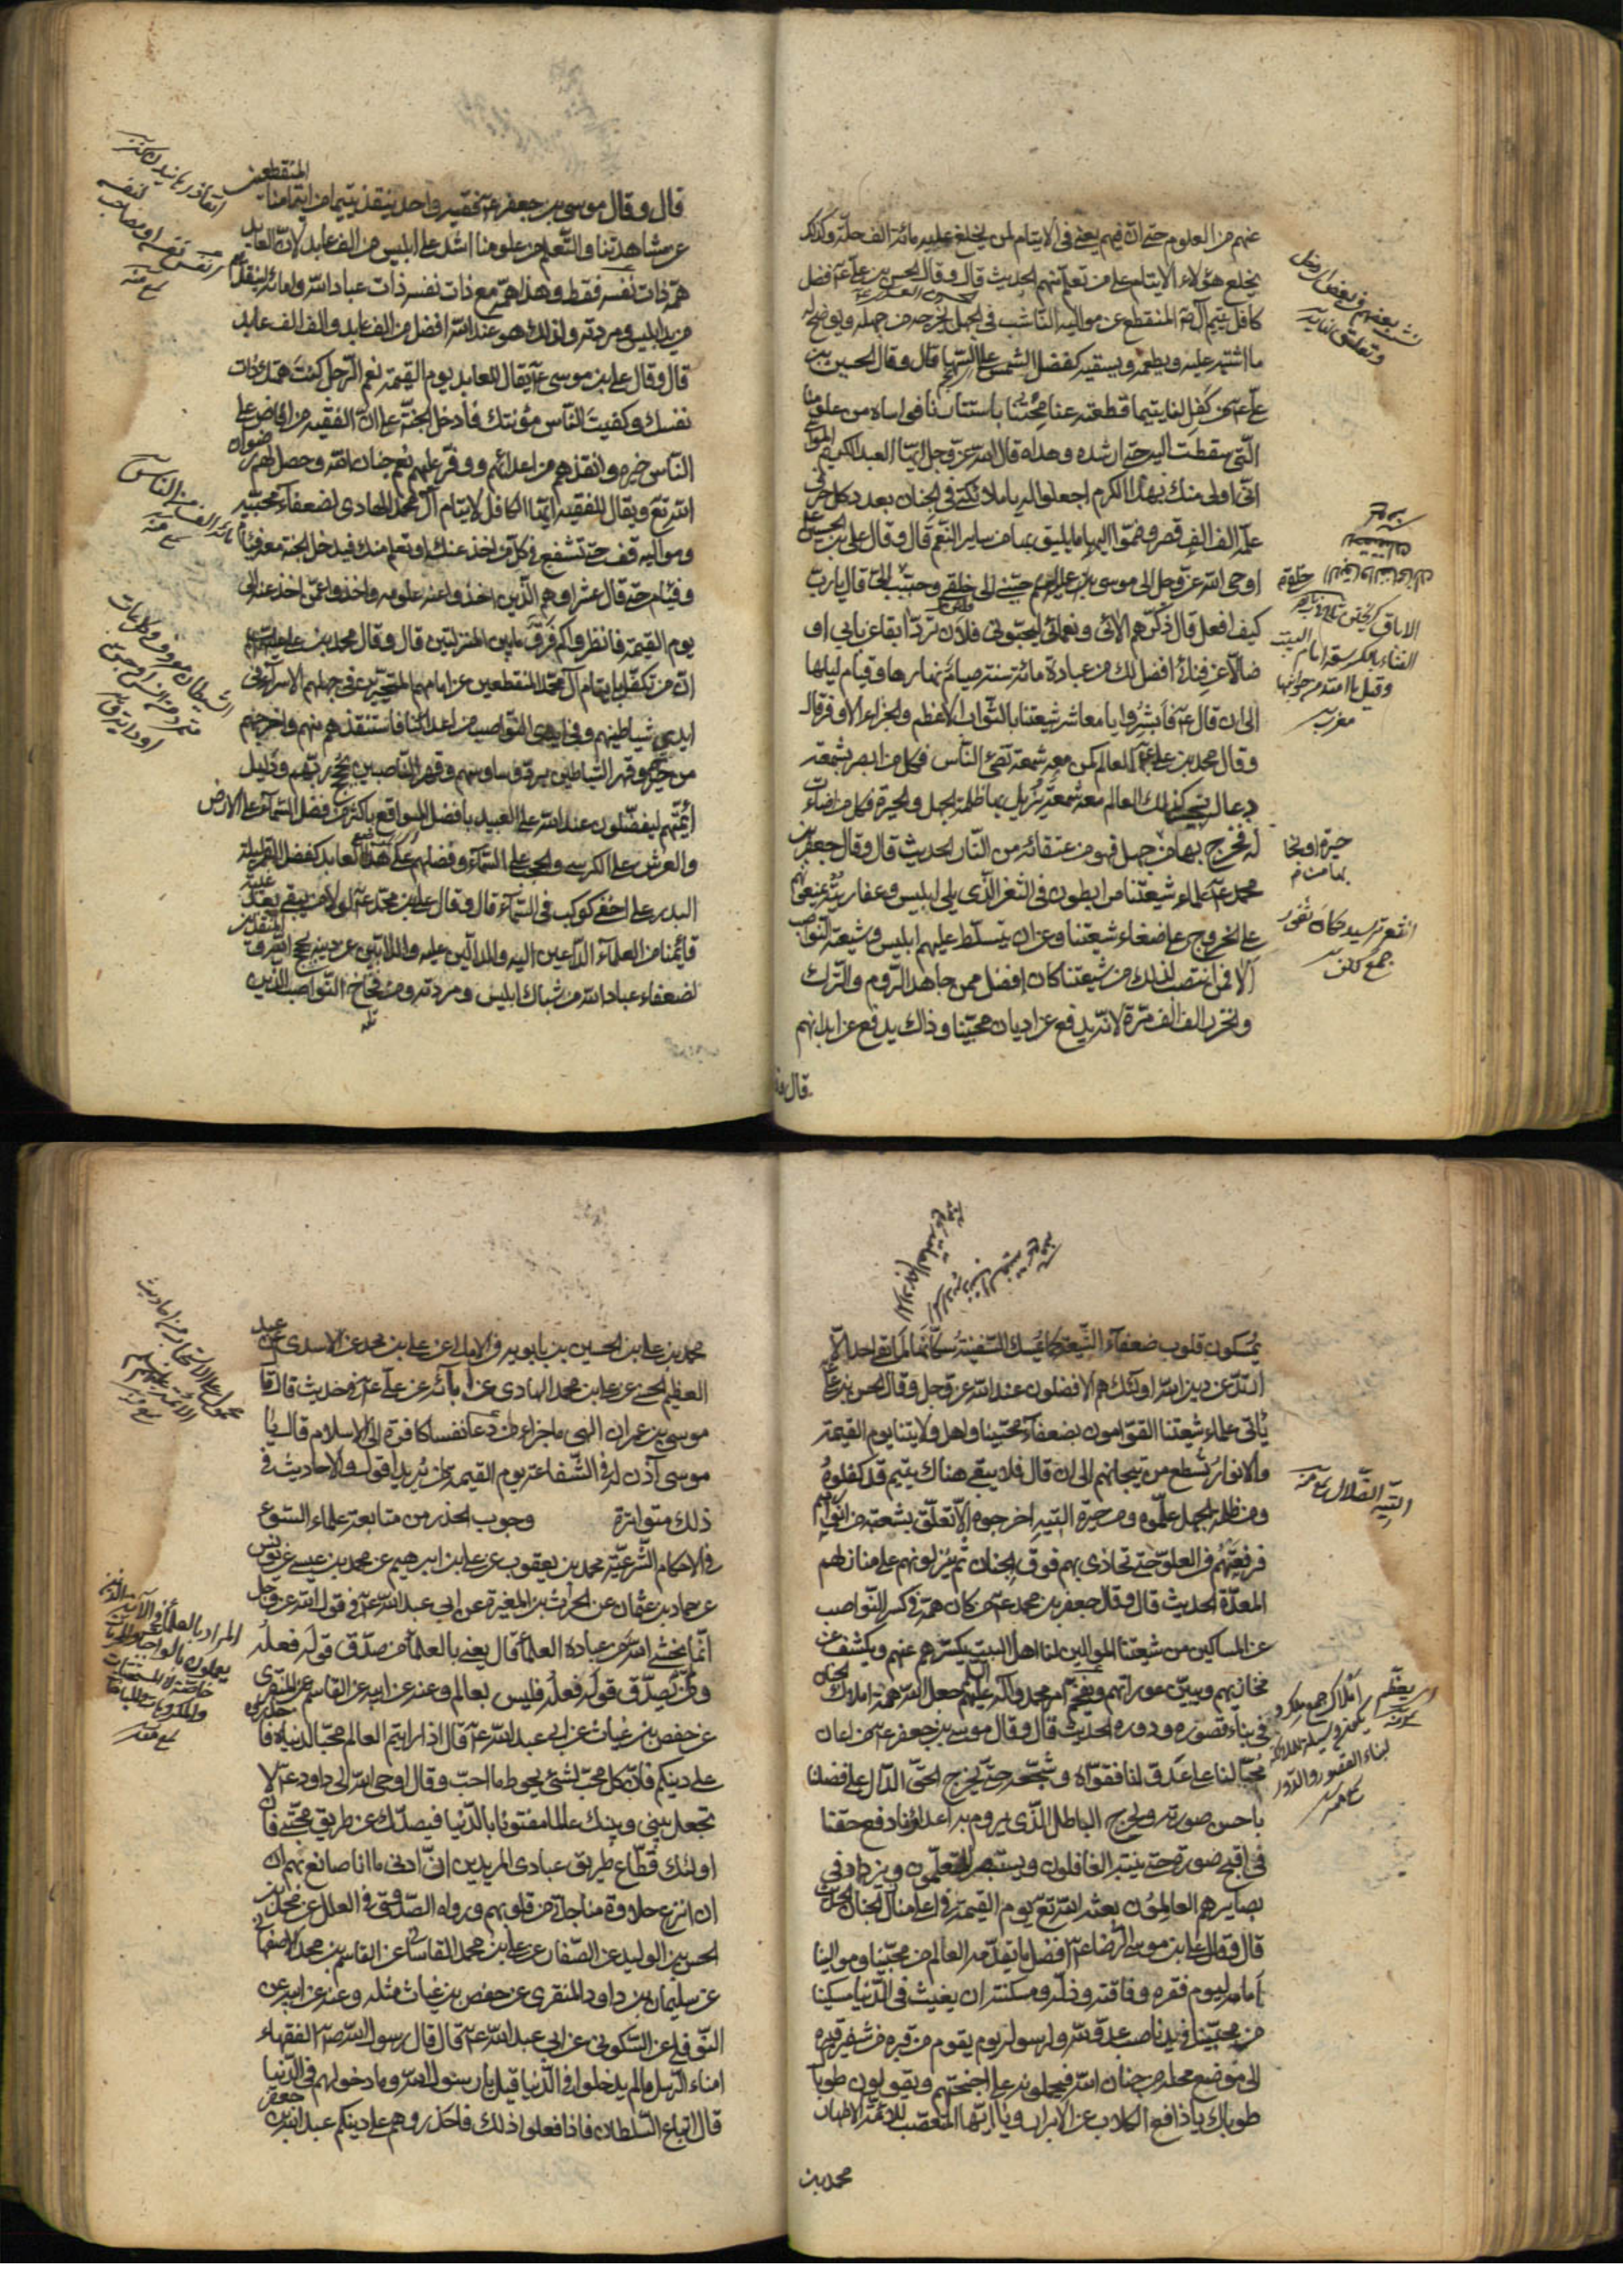 عنهم من العلوم حتى ان فيهم يعنى فى الايتام لمن يخلع عليه مائة الف حلة وكذلك
يخلع هؤلاء الايتام على من تعلم منهم الحديث قال وقال الحسن بن على ع فضل
كافل يتيم آل محمد المنقطع عن مواليه الناشب فى الجهل يخرجه من جهله ويوضح له
ما اشتبه عليه ويطعمه ويسقيه كفضل الشمس على السها قال وقال الحسين بن
على ع من كفل لنا يتيما قطعته عنا محنتنا باستتارنا فواساه من علومنا
التى سقطت اليه حتى ارشده وهداه قال الله عز وجل ايها العبد الكريم المواسى
انى اولى منك بهذا الكرم اجعلوا له يا ملائكتى فى الجنان بعدد كل حرف
علمه الف الف قصر وضموا اليها ما يليق بها من ساير النعم قال وقال على بن الحسين ع
اوحى الله عز وجل الى موسى حببنى الى خلقى وحبب خلقى الى قال يا رب
كيف افعل قال ذكرهم الائى ونعمائى ليحبونى فلان ترد ابقا عن بابى او
ضالا عن فنائى افضل لك من عبادة مائة سنة صيام نهارها وقيام ليلها
الى ان قال ع فابشروا يا معاشر شيعتنا بالثواب الاعظم والجزاء الاوفر قال
وقال محمد بن على ع العالم كمن معه شمعة تضئ الناس فكل من ابصر بشمعته
دعا له بخير كذلك العالم معه شمعة يزيل بها ظلمة الجهل والحيرة فكل من اضاءت
له فخرج بها من جهل فهو من عتقائه من النار الحديث قال وقال جعفر بن
محمد ع علماء شيعتنا مرابطون فى الثغر الذى يلى ابليس وعفاريته يمنعونهم
عن الخروج على ضعفاء شيعتنا وعن ان يتسلط عليهم ابليس وشيعته النواصب
الا فمن انتصب لذلك من شيعتنا كان افضل ممن جاهد الروم والترك
والخزر الف الف مرة لانه يدفع عن اديان محبينا وذاك يدفع عن ابدانهم
حيرة او نجا
بها من
جمع
قال وقال موسى بن جعفر ع فقيه واحد ينقذ يتيما من ايتامنا المنقطعين
عن مشاهدتنا والتعلم من علومنا اشد على ابليس من الف عابد لان العابد
همه ذات نفسه فقط وهذا همه مع ذات نفسه ذات عباد الله وامائه لينقذهم
من يد ابليس ومردته ولذلك هو عند الله افضل من الف عابد والف الف عابد
قال وقال على بن موسى ع يقال للعابد يوم القيمة نعم الرجل كنت همتك ذات
نفسك وكفيت الناس مؤنتك فادخل الجنة الا ان الفقيه من افاض على
الناس خيره وانقذهم من اعدائهم ووفر عليهم نعم جنان الله وحصل لهم رضوان
الله تع ويقال للفقيه ايها الكافل لايتام آل محمد الهادى لضعفاء محبيه
ومواليه قف حتى تشفع فى كل من اخذ عنك او تعلم منك فيدخل الجنة معه فئام
وفئام حتى قال عشرا وهم الذين اخذوا عنه علومه واخذوا عمن اخذ عنه الى
يوم القيمة فانظروا كم فرق ما بين المنزلتين قال وقال محمد بن على
ان من تكفل بايتام آل محمد المنقطعين عن امامهم المتحيرين فى جهلهم الاسراء فى
ايدى شياطينهم وفى ايدى النواصب من اعدائنا فاستنقذهم منهم واخرجهم
من حيرتهم وقهر الشياطين برد وساوسهم وقهر الناصبين بحجج ربهم ودليل
ائمتهم ليفضلون عند الله على العبيد بافضل المواقع باكثر من فضل السماء على الارض
والعرش على الكرسى والحجب على السماء وفضلهم على هذا العابد كفضل القمر ليلة
البدر على اخفى كوكب فى السماء قال وقال على بن محمد ع لولا من يبقى بعد غيبة
قائمنا من العلماء الداعين اليه والدالين عليه والذابين عن دينه بحجج الله والمنقذين
لضعفاء عباد الله من شباك ابليس ومردته ومن فخاخ النواصب الذين
يمسكون قلوب ضعفاء الشيعة كما يمسك السفينة سكانها لما بقى احد الا
ارتد عن دين الله اولئك هم الافضلون عند الله عز وجل وقال الحسن بن على
ياتى علماء شيعتنا القوامون بضعفاء محبينا واهل ولايتنا يوم القيمة
والانوار تسطع من تيجانهم الى ان قال فلا يبقى هناك يتيم قد كفلوه
ومن ظلمة الجهل علموه ومن حيرة التيه اخرجوه الا تعلق بشعبة من انوارهم
فرفعتهم فى العلو حتى تحاذى بهم فوق الجنان ثم ينزلونهم على منازلهم
المعدة الحديث قال وقال جعفر بن محمد ع من كان همه فى كسر النواصب
عن المساكين من شيعتنا الموالين لنا اهل البيت يكسرهم عنهم ويكشف عن
مخازيهم ويبين عوراتهم ويفخم امر محمد وآله عليهم جعل الله همة املاك الجنان
فى بناء قصوره ودوره الحديث قال وقال موسى بن جعفر ع من اعان
محبا لنا على عدو لنا فقواه وشجعه حتى يخرج الحق الدال على فضلنا
باحسن صورته ويخرج الباطل الذى يروم به اعداؤنا دفع حقنا
فى اقبح صورة حتى يتنبه الغافلون ويستبصر المتعلمون ويزداد فى
بصايرهم العالمون بعثه الله تع يوم القيمة فى اعلى منازل الجنان الحديث
قال وقال على بن موسى الرضا ع افضل ما يقدمه العالم من محبينا وموالينا
امامه ليوم فقره وفاقته وذله ومسكنته ان يغيث فى الدنيا مسكينا
من محبينا من يد ناصب عدو لله ولرسوله يوم يقوم من قبره من شفير قبره
الى موضع محله من جنان الله فيحملونه على اجنحتهم ويقولون طوبا
طوباك يا دافع الكلاب عن الابرار ويا ايها المتعصب للائمة الاطهار
محمد بن
محمد بن على بن الحسين بن بابويه فى الامالى عن على بن محمد عن الاسدى عن عبد
العظيم الحسنى عن على بن محمد الهادى عن آبائه عن على ع فى حديث قال قال
موسى بن عمران الهى ما جزاء من دعا نفسا كافرة الى الاسلام قال يا
موسى آذن له فى الشفاعة يوم القيمة لمن يريد اقول والاحاديث فى
ذلك متواترة وجوب الحذر من متابعة علماء السوء
فى الاحكام الشرعية محمد بن يعقوب عن على بن ابرهيم عن محمد بن عيسى عن يونس
عن حماد بن عثمان عن الحرث بن المغيرة عن ابى عبد الله ع فى قول الله عز وجل
انما يخشى الله من عباده العلماء قال يعنى بالعلماء من صدق قوله فعله
ومن لم يصدق قوله فعله فليس بعالم وعنه عن ابيه عن القاسم عن المنقرى
عن حفص بن غياث عن ابى عبد الله ع قال اذا رايتم العالم محبا لدنياه فاحذروه
على دينكم فان كل محب لشئ يحوط ما احب وقال اوحى الله الى داود ع لا
تجعل بينى وبينك عالما مفتونا بالدنيا فيصدك عن طريق محبتى فان
اولئك قطاع طريق عبادى المريدين ان ادنى ما انا صانع بهم ان
ان انزع حلاوة مناجاتى من قلوبهم ورواه الصدوق فى العلل عن محمد بن
الحسن بن الوليد عن الصفار عن على بن محمد القاسانى عن القاسم بن محمد الاصفهانى
عن سليمان بن داود المنقرى عن حفص بن غياث مثله وعنه عن ابيه عن
النوفلى عن السكونى عن ابى عبد الله ع قال قال رسول الله ص الفقهاء
امناء الرسل ما لم يدخلوا فى الدنيا قيل يا رسول الله وما دخولهم فى الدنيا
قال اتباع السلطان فاذا فعلوا ذلك فاحذروهم على دينكم عبد الله بن جعفر